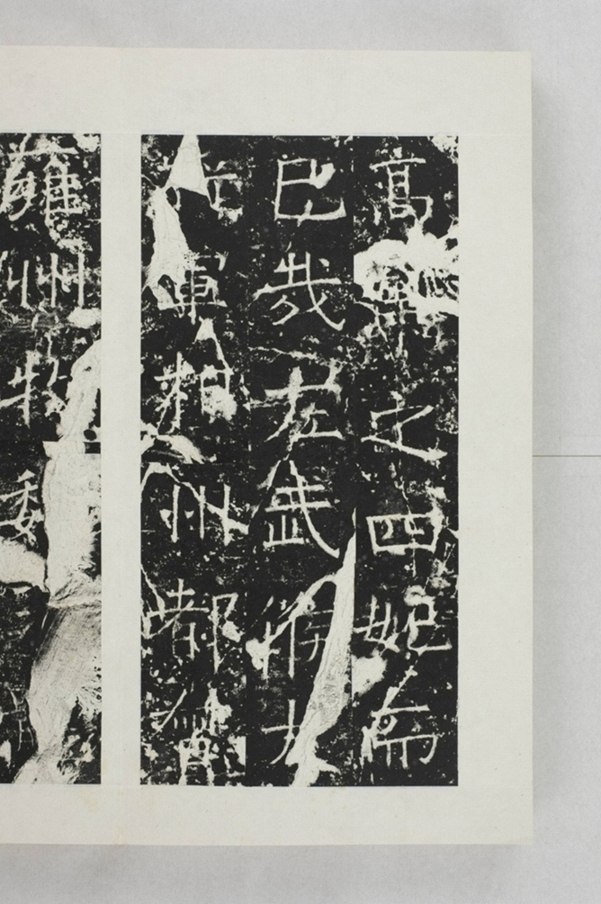 高辛之四妃而
已哉左武候大
軍相州都督
雍州牧